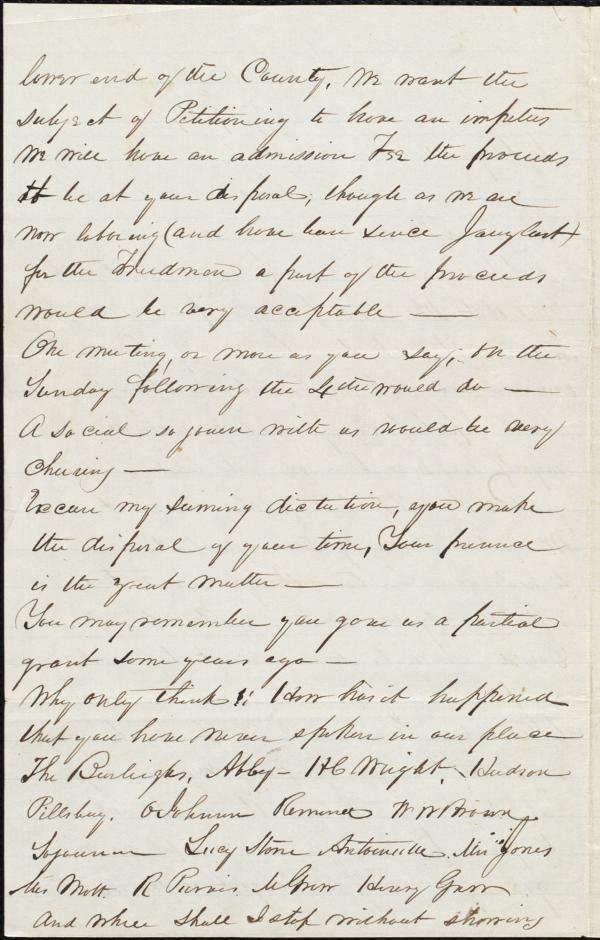 lower end of the County. We want the
subject of Petitioning to have an impetus
We will have an admission Fee the proceeds
to be at your disposal, though as we are
now laboring (and have been since Jany last)
for the Freedman a part of the proceeds
would be very acceptable —
One meeting, or more as you say, on the
Sunday following the 4th would do —
A social sojourn with us would be very
cheering —
Excuse my seeming dictation, you make
the disposal of your time, Your presence
is the great matter —
You may remember you gave us a partial
grant some years ago —
Why only think !! How has it happened
that you have never spoken in our place
The Burleighs, Abby – H C Wright, Hudson
Pillsbury. O Johnson Remond W W Brown
Sojourner Lucy Stone Antoinette. Mrs "Jones
Mrs Mott. R Purvis. McGrew Henry
And where shall I stop without showing